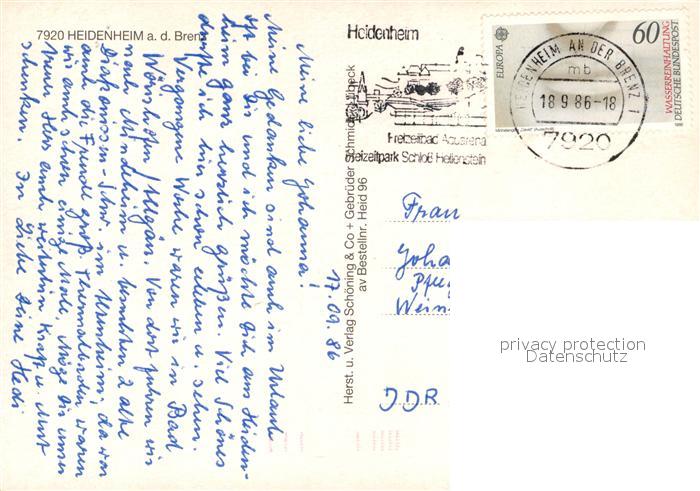 7920 HEIDENHEIM a. d. Brenz
Meine liebe Johanna!
17.09.86
Meine Gedanken sind auch im Urlaub
oft bei Dir und ich möchte Dich aus Heiden-
heim ganz herzlich grüßen. Viel Schönes
durfte ich hier schon erleben u. sehen.
Vergangene Woche waren wir in Bad
Wörishofen/Allgäu. Von dort fuhren wir
nach Mindelheim u. besuchten 2 alte
Diakonissen-Schw. im, da war
auch die Freude groß. Thermalbaden waren
wir auch schon einige Male. Möge Dir unser
treuer Herr auch weiterhin Kraft u. Mut
schenken. In Liebe Deine Hedi
Herst. u. Verlag Schöning & Co + Gebrüder Schmidt, Lübeck
av Bestellnr. Heid 96
Heidenheim
Freizeitbad Aquarena
Freizeitpark Schloß Hellenstein
HEIDENHEIM AN DER BRENZ 1
mb
18.9.86-18
7920
EUROPA
60
WASSERREINHALTUNG
DEUTSCHE BUNDESPOST
Frau
Joha
Pfleg
Weim
DDR
privacy protection
Datenschutz